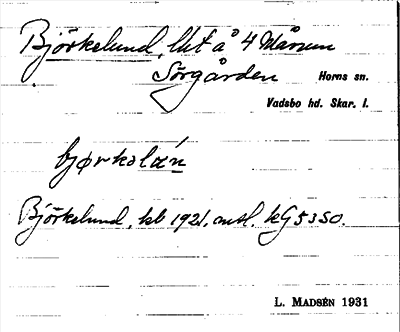 Björkelund, lht å 4 Mårum
Sörgården Horns sn.
Vadsbo hd. Skar. l.
bjørkolán
Björkelund, kb 1921, antl. kG 5350.
L. MADSÉN 1931